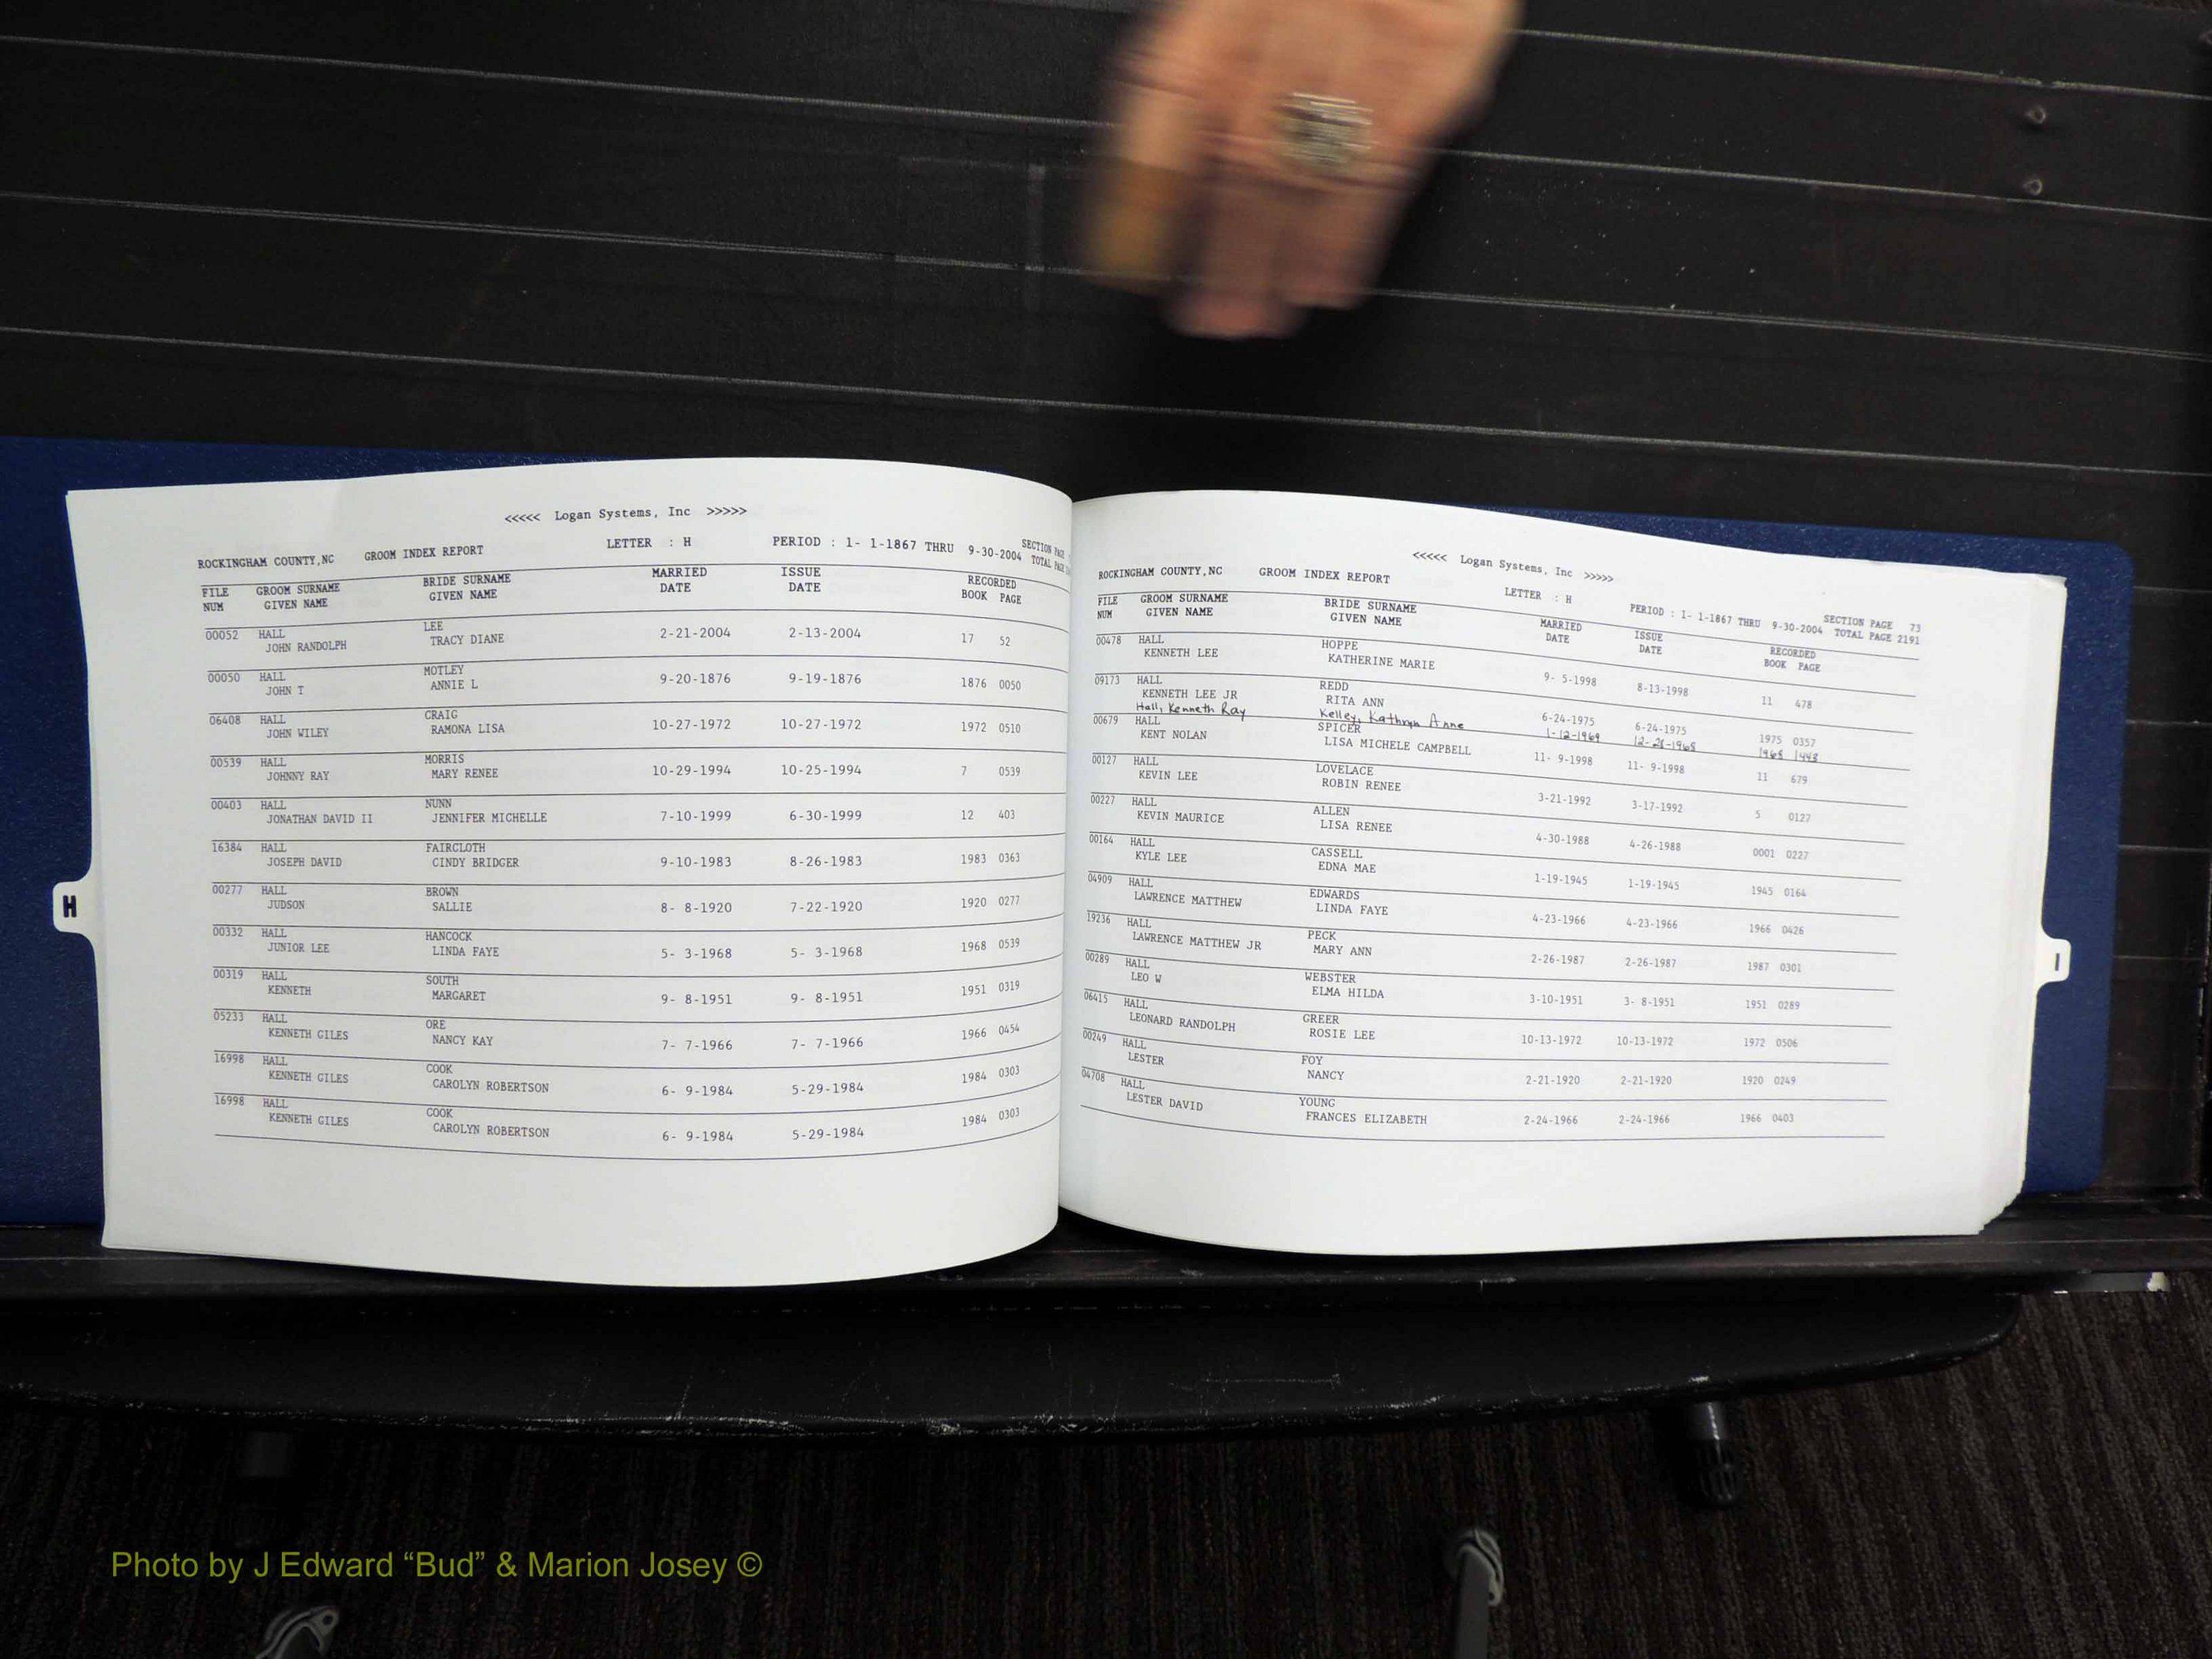 <<<<< Logan Systems, Inc >>>>>
ROCKINGHAM COUNTY,NC GROOM INDEX REPORT LETTER : H PERIOD : 1- 1-1867 THRU 9-30-2004 SECTION PAGE
TOTAL PAGE
FILE GROOM SURNAME BRIDE SURNAME MARRIED ISSUE RECORDED
NUM GIVEN NAME GIVEN NAME DATE DATE BOOK PAGE
00052 HALL LEE 2-21-2004 2-13-2004 17 52
JOHN RANDOLPH TRACY DIANE
00050 HALL MOTLEY 9-20-1876 9-19-1876 1876 0050
JOHN T ANNIE L
06408 HALL CRAIG 10-27-1972 10-27-1972 1972 0510
JOHN WILEY RAMONA LISA
00539 HALL MORRIS 10-29-1994 10-25-1994 7 0539
JOHNNY RAY MARY RENEE
00403 HALL NUNN 7-10-1999 6-30-1999 12 403
JONATHAN DAVID II JENNIFER MICHELLE
16384 HALL FAIRCLOTH 9-10-1983 8-26-1983 1983 0363
JOSEPH DAVID CINDY BRIDGER
00277 HALL BROWN 8- 8-1920 7-22-1920 1920 0277
JUDSON SALLIE
00332 HALL HANCOCK 5- 3-1968 5- 3-1968 1968 0539
JUNIOR LEE LINDA FAYE
00319 HALL SOUTH 9- 8-1951 9- 8-1951 1951 0319
KENNETH MARGARET
05233 HALL ORE 7- 7-1966 7- 7-1966 1966 0454
KENNETH GILES NANCY KAY
16998 HALL COOK 6- 9-1984 5-29-1984 1984 0303
KENNETH GILES CAROLYN ROBERTSON
16998 HALL COOK 6- 9-1984 5-29-1984 1984 0303
KENNETH GILES CAROLYN ROBERTSON
H
<<<<< Logan Systems, Inc >>>>>
ROCKINGHAM COUNTY,NC GROOM INDEX REPORT LETTER : H PERIOD : 1- 1-1867 THRU 9-30-2004 SECTION PAGE 73
TOTAL PAGE 2191
FILE GROOM SURNAME BRIDE SURNAME MARRIED ISSUE RECORDED
NUM GIVEN NAME GIVEN NAME DATE DATE BOOK PAGE
00478 HALL HOPPE 9- 5-1998 8-13-1998 11 478
KENNETH LEE KATHERINE MARIE
09173 HALL REDD 6-24-1975 6-24-1975 1975 0357
KENNETH LEE JR RITA ANN
Hall, Kenneth Ray Kelley, Kathryn Anne 1-12-1969 12-28-1968 1968 1443
00679 HALL SPICER 11- 9-1998 11- 9-1998 11 679
KENT NOLAN LISA MICHELE CAMPBELL
00127 HALL LOVELACE 3-21-1992 3-17-1992 5 0127
KEVIN LEE ROBIN RENEE
00227 HALL ALLEN 4-30-1988 4-26-1988 0001 0227
KEVIN MAURICE LISA RENEE
00164 HALL CASSELL 1-19-1945 1-19-1945 1945 0164
KYLE LEE EDNA MAE
04909 HALL EDWARDS 4-23-1966 4-23-1966 1966 0426
LAWRENCE MATTHEW LINDA FAYE
19236 HALL PECK 2-26-1987 2-26-1987 1987 0301
LAWRENCE MATTHEW JR MARY ANN
00289 HALL WEBSTER 3-10-1951 3- 8-1951 1951 0289
LEO W ELMA HILDA
06415 HALL GREER 10-13-1972 10-13-1972 1972 0506
LEONARD RANDOLPH ROSIE LEE
00249 HALL FOY 2-21-1920 2-21-1920 1920 0249
LESTER NANCY
04708 HALL YOUNG 2-24-1966 2-24-1966 1966 0403
LESTER DAVID FRANCES ELIZABETH
I
Photo by J Edward “Bud” & Marion Josey ©